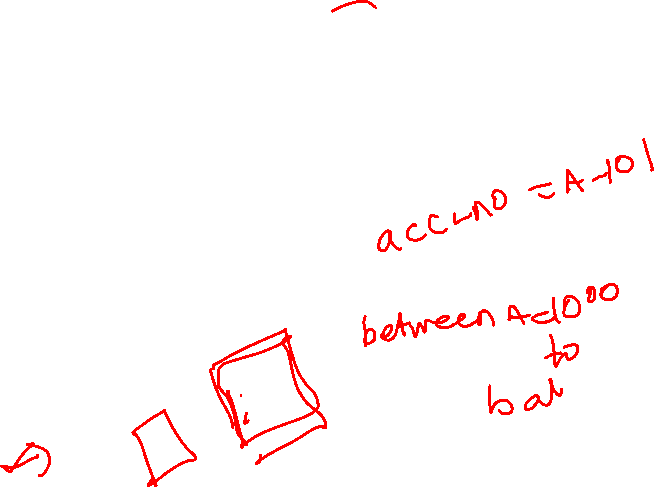 acc-no = A-101
between A-1000
to
bal